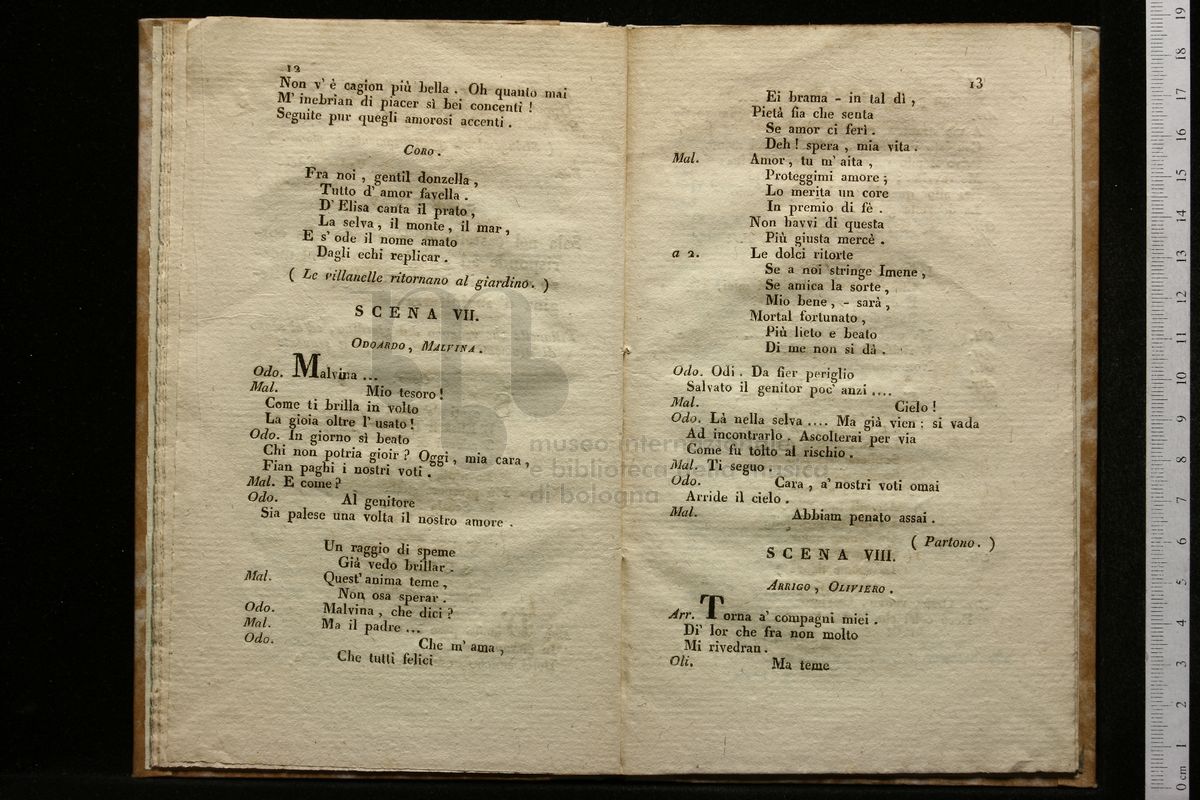 12
Non v' è cagion più bella . Oh quanto mai
M' inebrian di piacer sì bei concenti !
Seguite pur quegli amorosi accenti .
CORO .
Fra noi , gentil donzella ,
Tutto d' amor favella .
D' Elisa canta il prato ,
La selva , il monte , il mar ,
E s' ode il nome amato
Dagli echi replicar .
( Le villanelle ritornano al giardino . )
SCENA VII.
ODOARDO , MALVINA .
Odo. Malvina ...
Mal. Mio tesoro !
Come ti brilla in volto
La gioia oltre l' usato !
Odo. In giorno sì beato
Chi non potria gioir ? Oggi , mia cara ,
Fian paghi i nostri voti .
Mal. E come ?
Odo. Al genitore
Sia palese una volta il nostro amore .
Un raggio di speme
Già vedo brillar .
Mal. Quest' anima teme ,
Non osa sperar .
Odo. Malvina , che dici ?
Mal. Ma il padre ...
Odo. Che m' ama ,
Che tutti felici
13
Ei brama - in tal dì ,
Pietà fia che senta
Se amor ci ferì .
Deh ! spera , mia vita .
Mal. Amor , tu m' aita ,
Proteggimi amore ;
Lo merita un core
In premio di fè .
Non havvi di questa
Più giusta mercè .
a 2. Le dolci ritorte
Se a noi stringe Imene ,
Se amica la sorte ,
Mio bene , - sarà ,
Mortal fortunato ,
Più lieto e beato
Di me non si dà .
Odo. Odi . Da fier periglio
Salvato il genitor poc' anzi ....
Mal. Cielo !
Odo. Là nella selva .... Ma già vien : si vada
Ad incontrarlo . Ascolterai per via
Come fu tolto al rischio .
Mal. Ti seguo .
Odo. Cara , a' nostri voti omai
Arride il cielo .
Mal. Abbiam penato assai .
( Partono . )
SCENA VIII.
ARRIGO , OLIVIERO .
Arr. Torna a' compagni miei .
Di' lor che fra non molto
Mi rivedran .
Oli. Ma teme
museo internazionale
e biblioteca della musica
di bologna
0 cm 1 2 3 4 5 6 7 8 9 10 11 12 13 14 15 16 17 18 19